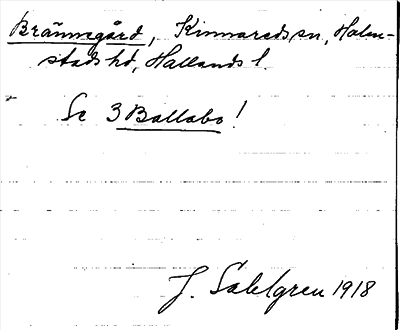 Brännegård, Kinnareds sn, Halm-
stads hd, Hallands l.
Se 3 Ballabo!
J. Sahlgren 1918